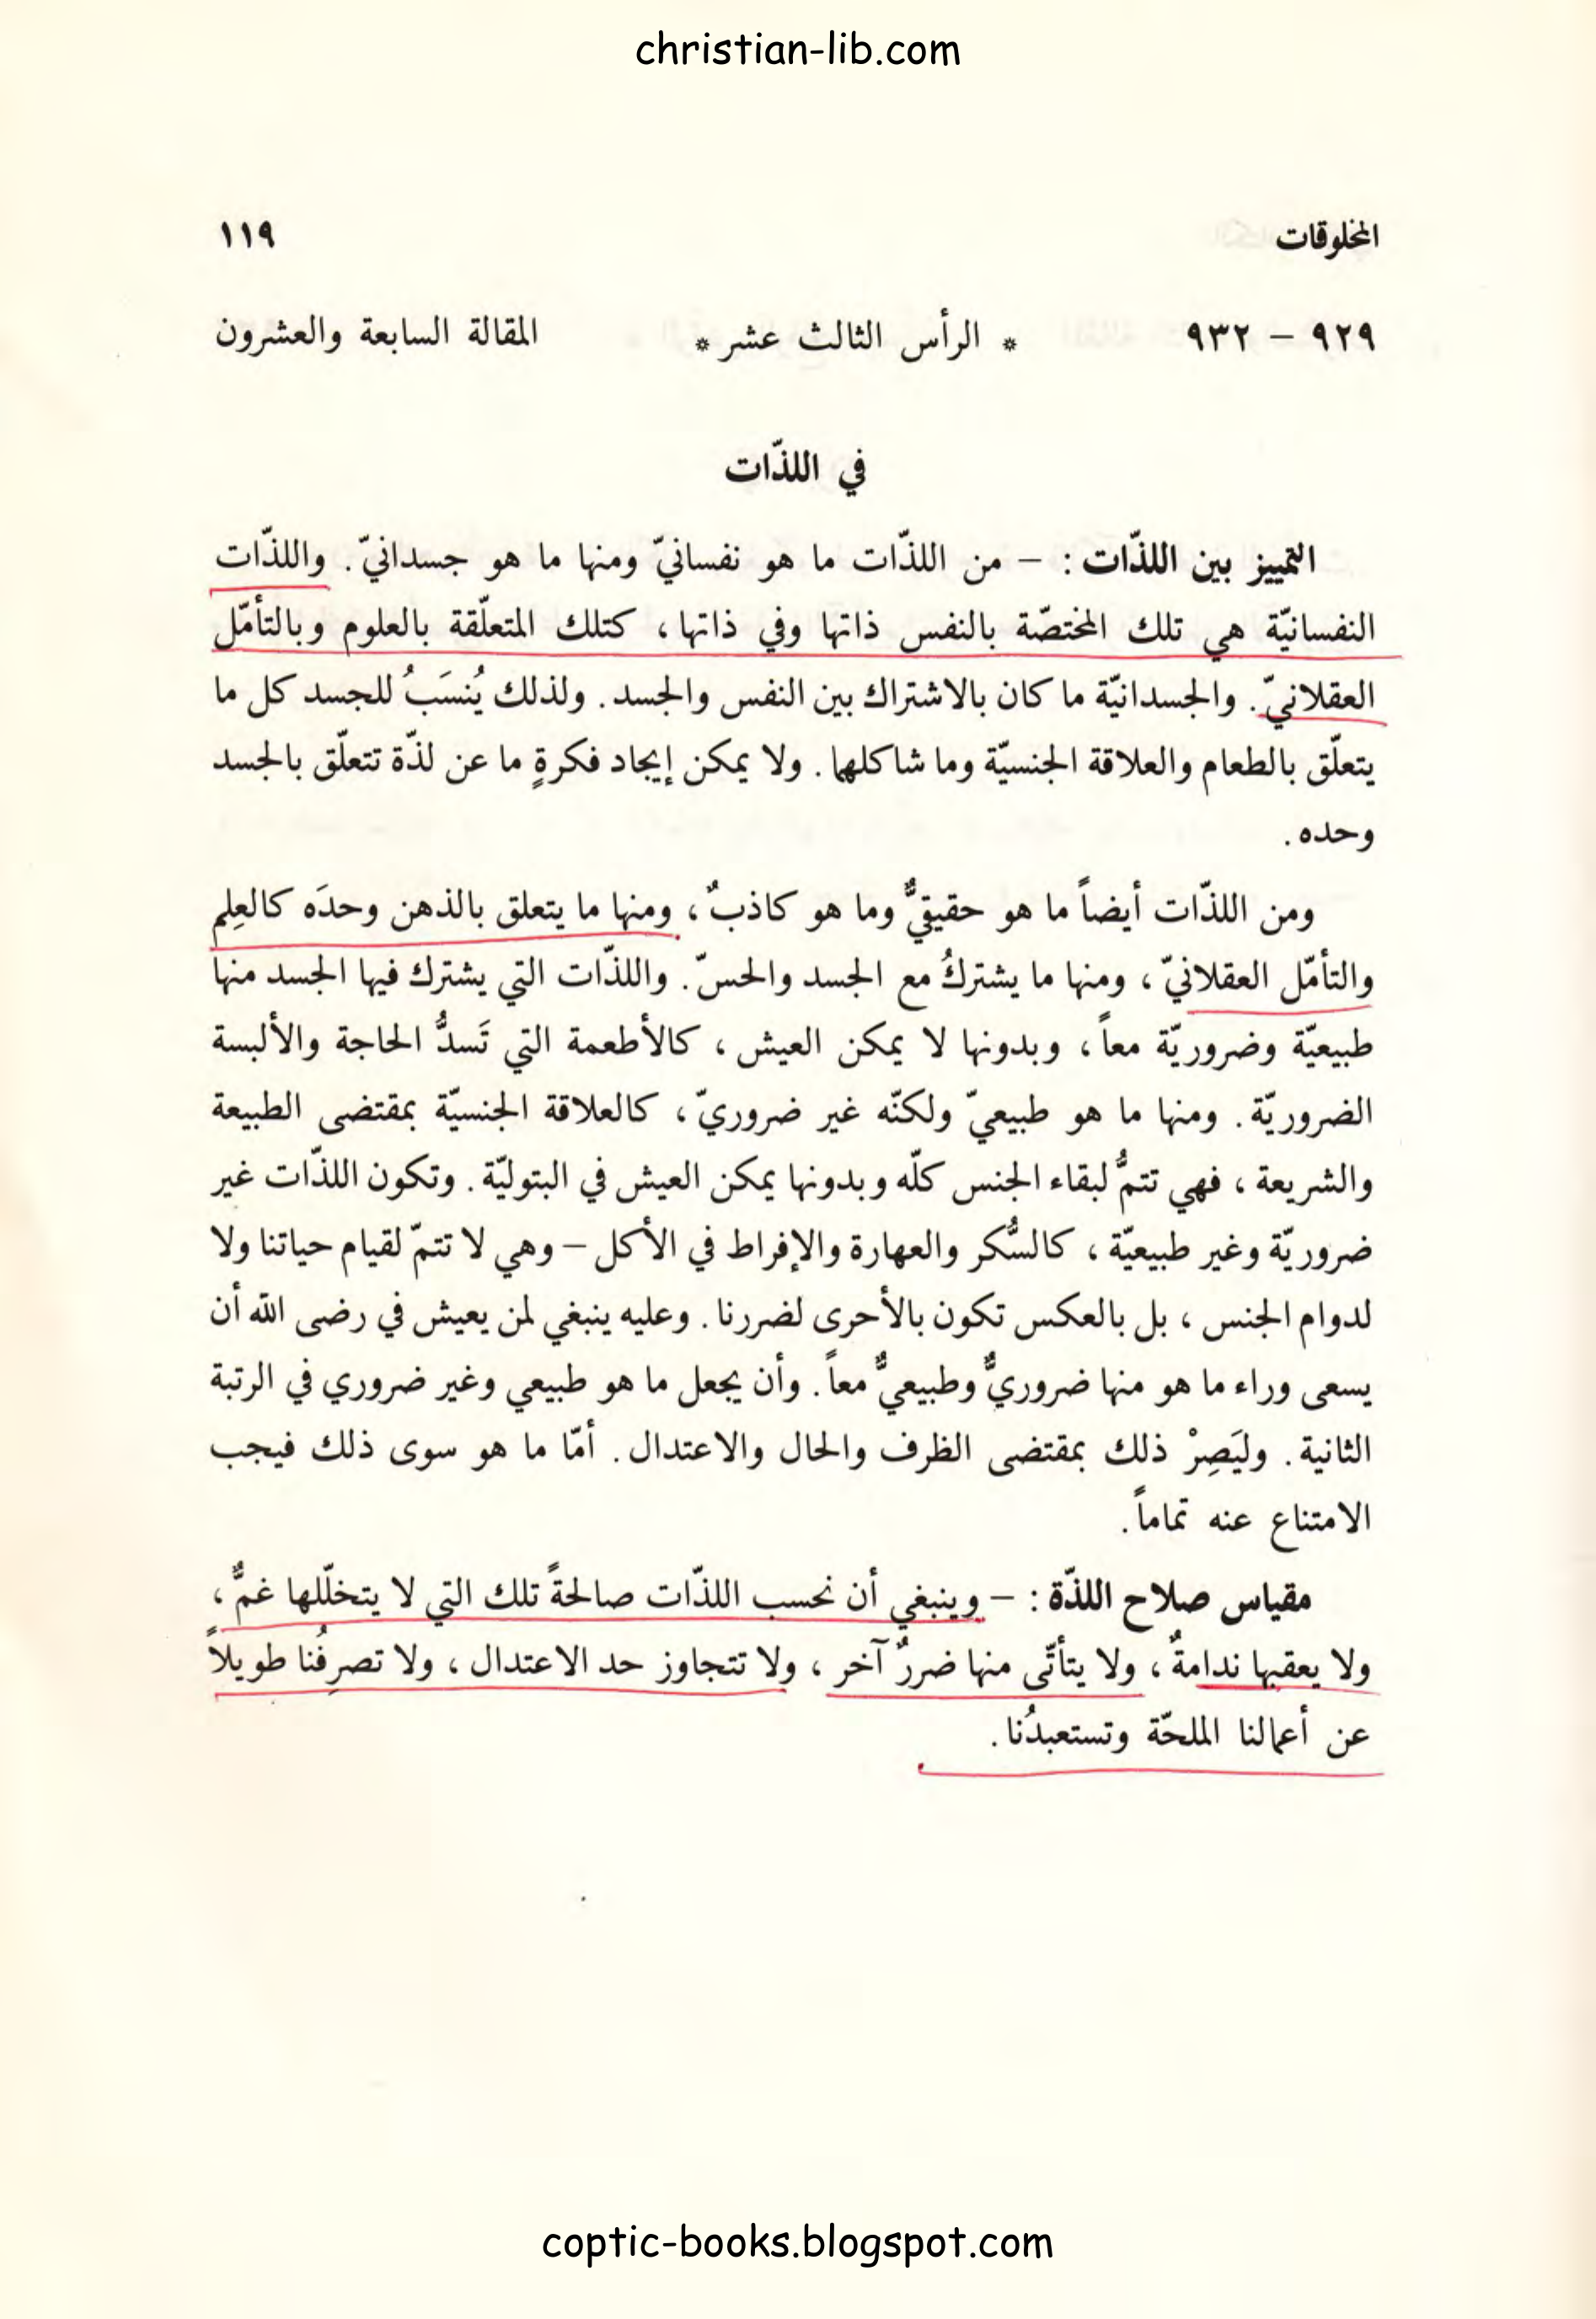 christian-lib.com
المخلوقات ١١٩
٩٢٩ – ٩٣٢ * الرأس الثالث عشر * المقالة السابعة والعشرون
في اللذّات
التمييز بين اللذّات : – من اللذّات ما هو نفسانيّ ومنها ما هو جسدانيّ . واللذّات
النفسانيّة هي تلك المختصّة بالنفس ذاتها وفي ذاتها ، كتلك المتعلّقة بالعلوم وبالتأمّل
العقلانيّ . والجسدانيّة ما كان بالاشتراك بين النفس والجسد . ولذلك يُنسَبُ للجسد كل ما
يتعلّق بالطعام والعلاقة الجنسيّة وما شاكلهما . ولا يمكن إيجاد فكرةٍ ما عن لذّة تتعلّق بالجسد
وحده .
ومن اللذّات أيضاً ما هو حقيقيٌّ وما هو كاذبٌ ، ومنها ما يتعلق بالذهن وحدَه كالعِلم
والتأمّل العقلانيّ ، ومنها ما يشتركُ مع الجسد والحسّ . واللذّات التي يشترك فيها الجسد منها
طبيعيّة وضروريّة معاً ، وبدونها لا يمكن العيش ، كالأطعمة التي تَسدُّ الحاجة والألبسة
الضروريّة . ومنها ما هو طبيعيّ ولكنّه غير ضروريّ ، كالعلاقة الجنسيّة بمقتضى الطبيعة
والشريعة ، فهي تتمُّ لبقاء الجنس كلّه وبدونها يمكن العيش في البتوليّة . وتكون اللذّات غير
ضروريّة وغير طبيعيّة ، كالسُّكر والعهارة والإفراط في الأكل – وهي لا تتمّ لقيام حياتنا ولا
لدوام الجنس ، بل بالعكس تكون بالأحرى لضررنا . وعليه ينبغي لمن يعيش في رضى الله أن
يسعى وراء ما هو منها ضروريٌّ وطبيعيٌّ معاً . وأن يجعل ما هو طبيعي وغير ضروري في الرتبة
الثانية . وليَصِرْ ذلك بمقتضى الظرف والحال والاعتدال . أمّا ما هو سوى ذلك فيجب
الامتناع عنه تماماً .
مقياس صلاح اللذّة : – وينبغي أن نحسب اللذّات صالحةً تلك التي لا يتخلّلها غمٌّ ،
ولا يعقبها ندامةٌ ، ولا يتأتّى منها ضررٌ آخر ، ولا تتجاوز حد الاعتدال ، ولا تصرِفُنا طويلاً
عن أعمالنا الملحّة وتستعبدُنا .
coptic-books.blogspot.com